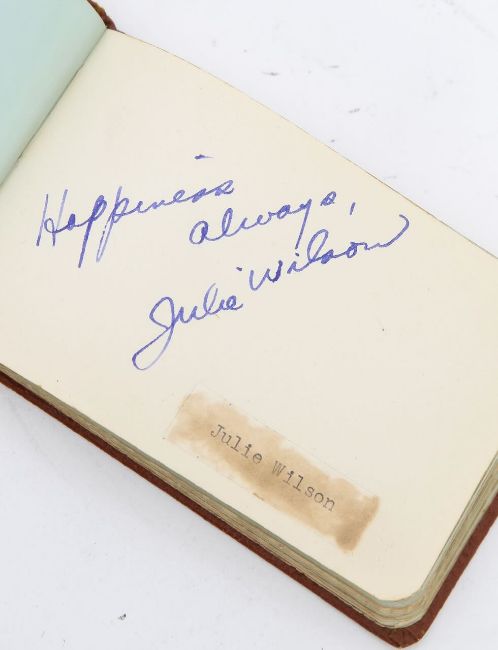 Happiness
always,
Julie Wilson
Julie Wilson